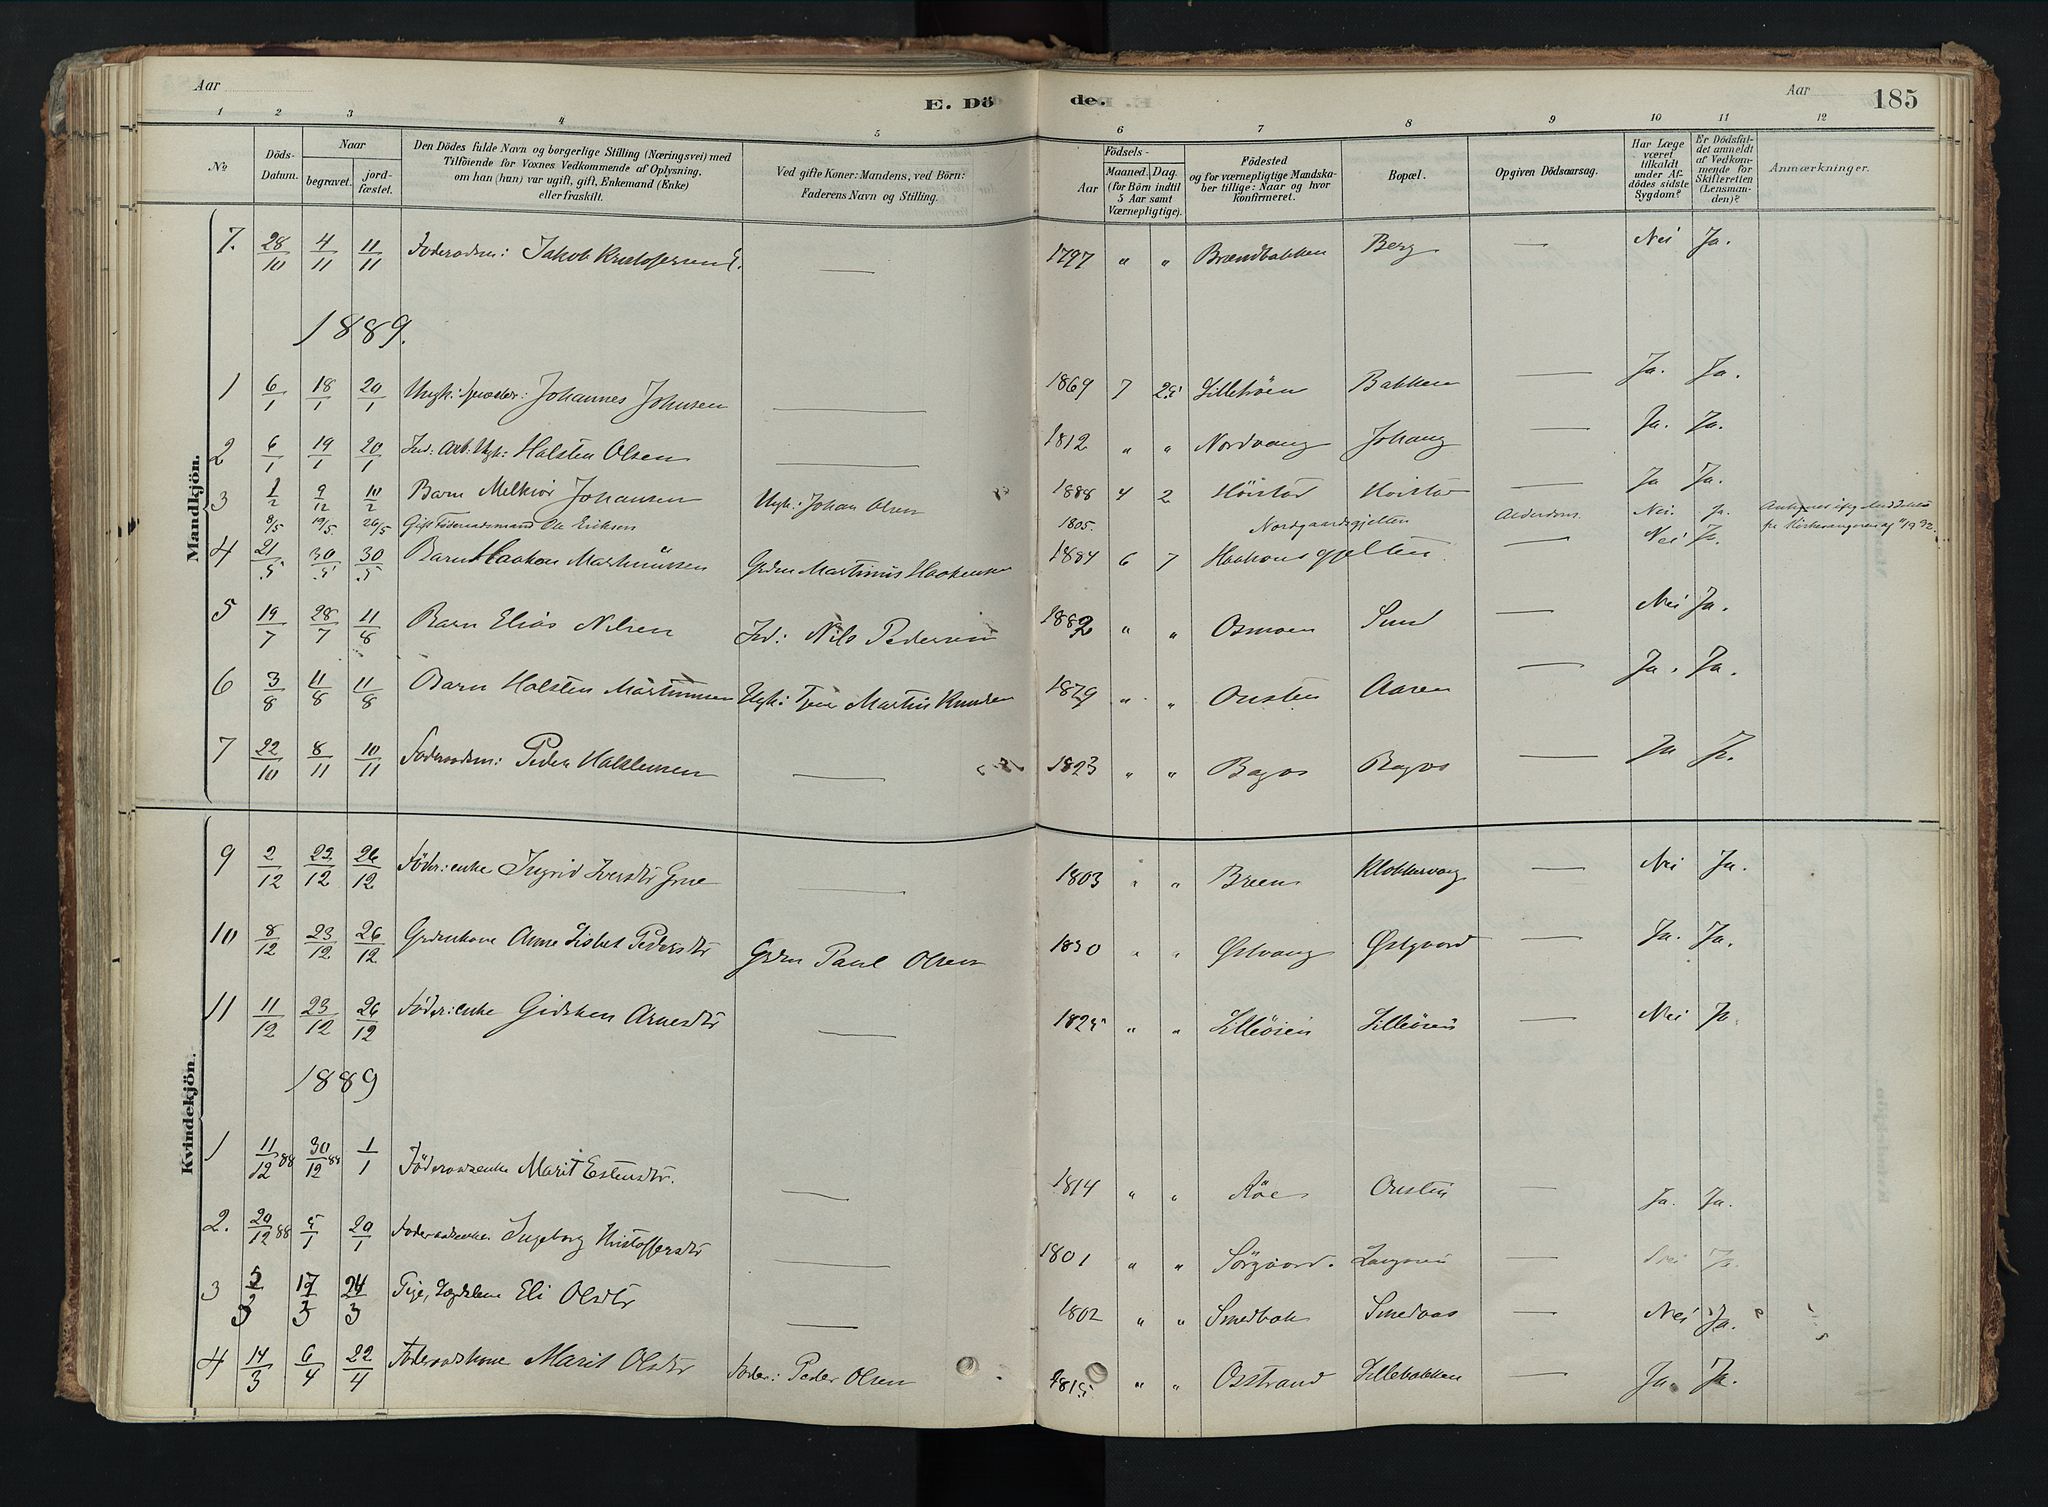 Aar
E. Dö
de.
Aar
185
1 2 3 4 5 6 7 8 9 10 11 12
No
Döds-Datum.
Naar
begravet.
jord-fæstet.
Den Dödes fulde Navn og borgerlige Stilling (Næringsvei) med
Tilföiende for Voxnes Vedkommende af Oplysning,
om han (hun) var ugift, gift, Enkemand (Enke)
eller fraskilt.
Ved gifte Koner: Mandens, ved Börn:
Faderens Navn og Stilling.
Födsels-
Aar
Maaned. Dag.
(for Börn indtil
5 Aar samt
Værnepligtige).
Födested
og for værnepligtige Mandska-
ber tillige: Naar og hvor
konfirmeret.
Bopæl.
Opgiven Dödsaarsag.
Har Læge
været
tilkaldt
under Af-
dödes sidste
Sygdom?
Er Dödsfal-
det anmeldt
af Vedkom-
mende for
Skifteretten
(Lensman-
den)?
Anmærkninger.
Mandkjön.
7. 28/10 4/11 11/11 Foderadsm: Jakob Kristofersen E. — 1797 " " Brændbakken Berg — Nei Ja.
1889.
1 6/1 18/1 20/1 Ungk: Johannes Johnsen — 1869 7 25 Lilleöien Bakken — Ja. Ja.
2 6/1 19/1 20/1 Ind: Arb: Ungk: Halsten Olsen — 1812 " " Nordvang Johang — Ja. Ja.
3 1/2 9/12 10/2 Barn Melkior Johansen Ungk: Johan Olsen 1888 4 2 Höistad Hoistad Ja Ja.
8/5 19/5 26/5 Gift Föderaadsmand Ole Eriksen 1805. Nordgaardsgjelten Alderdom. Nei. Ja.
4 21/5 30/5 30/5 Barn Haakon Martinussen Grdm Martinus Haakensen 1884 6 7 Haakonsgjelten — Nei Ja.
5 19/7 28/7 11/8 Barn Elias Nilsen Ind: Nils Pedersen 1882 " " Osmoen Sund — Nei Ja.
6 3/8 11/8 11/8 Barn Halsten Martinussen Ungk: Tjen Martin Knudsen 1879 " " Ousten Aaren — Ja. Ja.
7 22/10 8/11 10/11 Foderaadsm: Peder Haldersen — 1823 " " Bagaas Bagaas — Ja Ja.
Kvindekjön.
9 2/12 23/12 26/12 Föder: enke Ingrid Iversdtr Grue — 1803 " " Breen Klokkervang — Nei Ja.
10 8/12 23/12 26/12 Grdmkone Anne Lisbet Pedersdtr Grdm Paul Olsen 1830 " " Østvang Østgaard — Ja. Ja.
11 11/12 23/12 26/12 Föder: enke Gidsken Arnesdtr — 1825 " " Lilleöien Lilleöien — Nei Ja.
1889
1 11/12 88 30/12 88 1/1 Föderaadsenke Marit Estensdtr. — 1814 " " Röe Ousten — Ja. Ja.
2. 20/12 88 5/1 20/1 Foderaadsenke Ingeborg Kristoffersdtr — 1801 " " Sörgaard. Langöien — Nei Ja.
3 5/3 17/3 24/3 Pige, Lægdslem Eli Olsdtr — 1802 " " Smedbak Smedaas — Nei Ja.
4 14/3 6/4 22/4 Foderaadskone Marit Olsdtr Foder: Peder Olsen 1815 " " Osstrand Lillebakken — Ja. Ja.